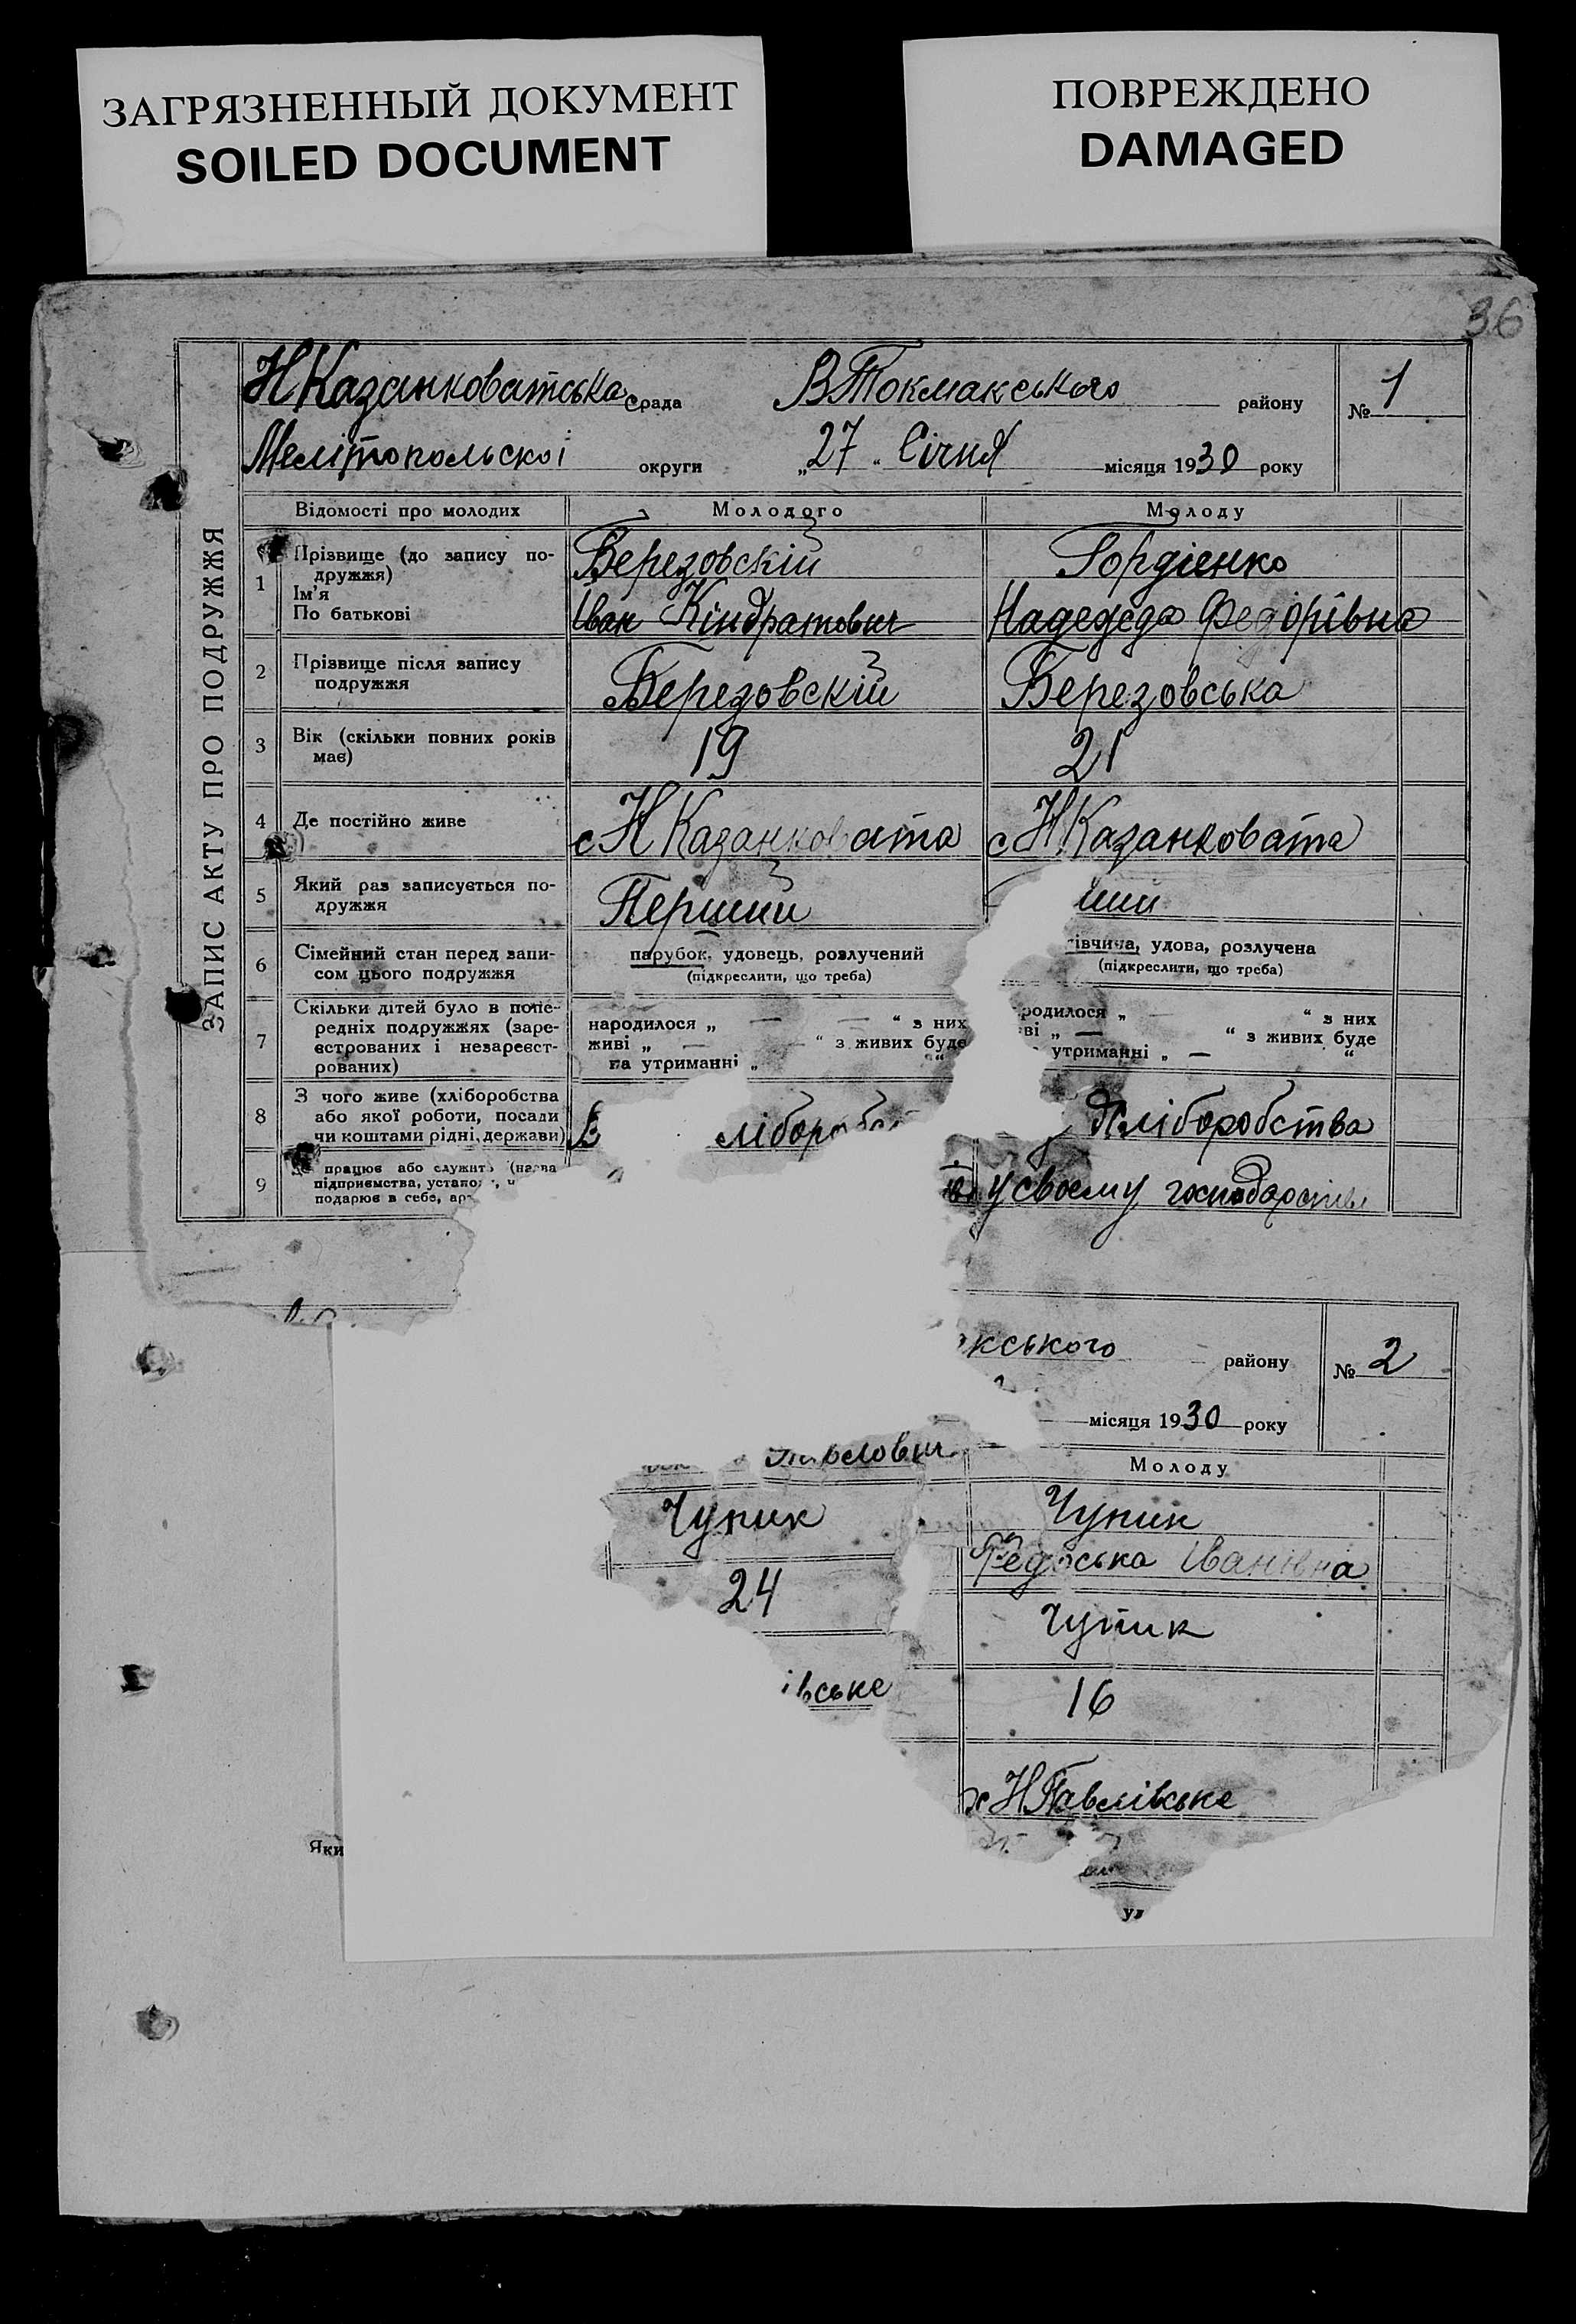 ЗАГРЯЗНЕННЫЙ ДОКУМЕНТ
SOILED DOCUMENT
ПОВРЕЖДЕНО
DAMAGED
36
ЗАПИС АКТУ ПРО ПОДРУЖЖЯ
Н Казанковатська Срада В Токмакського району № 1
Мелітопольскоі округи „27“ Січня місяця 1930 року
Відомості про молодих Молодого Молоду
1 Прізвище (до запису подружжя) Березовскій Гордіенко
Ім'я
По батькові Іван Кіндратович Надежда Федорівна
2 Прізвище після запису подружжя Березовскій Березовська
3 Вік (скільки повних років має) 19 21
4 Де постійно живе с Н Казанковата с Н Казанковата
5 Який раз записується подружжя Перший ший
6 Сімейний стан перед записом цього подружжя парубок, удовець, розлучений івчина, удова, розлучена
(підкреслити, що треба) (підкреслити, що треба)
7 Скільки дітей було в попередніх подружжях (зареєстрованих і незареєстрованих)
народилося „ — — “ з них родилося „ — “ з них
живі „ — — “ з живих буде ві „ — “ з живих буде
на утриманні „ “ утриманні „ — “
8 З чого живе (хліборобства або якої роботи, посади чи коштами рідні, держави) ліборобс Хліборобства
9 працює або служить (назва
підприємства, устано
подарює в себе, ар у своему господарстві
кського району № 2
місяця 1930 року
Молоду
Чупик Чупик
Федоська Іванівна
24 Чупик
івське 16
х Н Павлівське
Яки